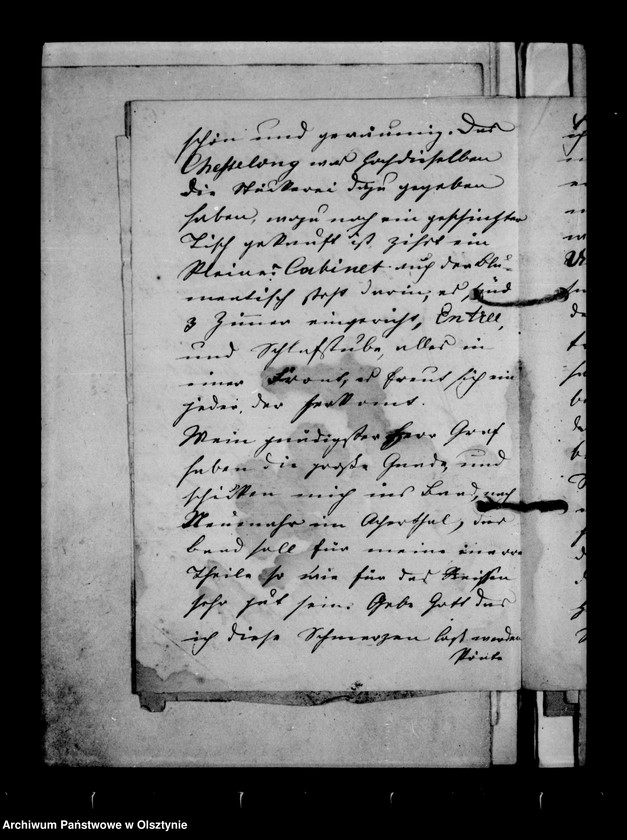 schön und geräumig. Das
Chesselong was hochdieselben
die Stückerei dazu gegeben
haben, wozu noch ein geschnitzter
Tisch gekauft ist, ziert ein
kleines Cabinet auch der Blu-
mentisch steht darin, es sind
3 Zimmer eingericht, Entree,
und Schlafstube, alles in
einer Front, es freut sich ein
jeder, der herkomt.
Mein gnädigster Herr Graf
haben die große Gnade, und
schicken mich ins Baad, nach
Neuenahr im Acherthal, das
baad soll für meine innere
Theile so wie für das Reissen
sehr gut sein. Gebe Gott das
ich diese Schmerzen los werden
könte
Archiwum Państwowe w Olsztynie